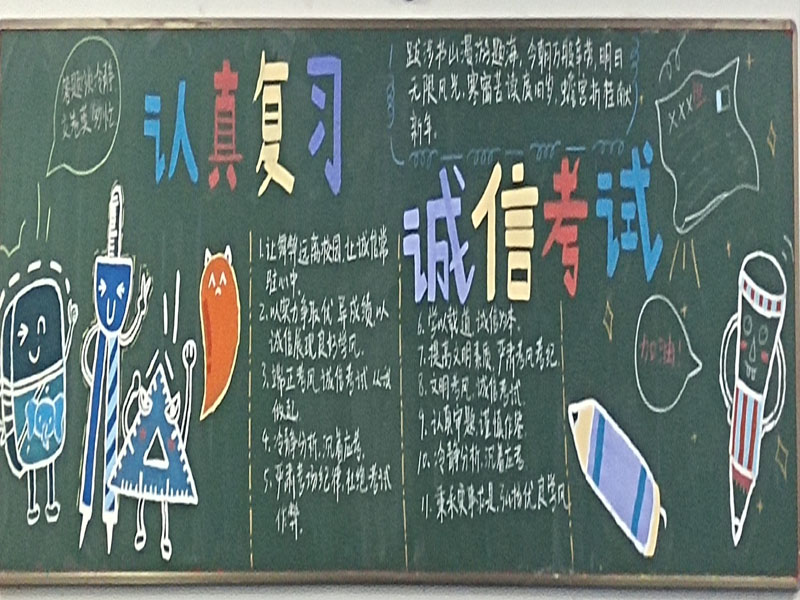 答题快冷静
交先莫慌忙
认真复习
跋涉书山漫游题海，今朝万般辛苦，明日
无限风光，寒窗苦读度旧岁，蟾宫折桂献
新年。
诚信考试
XXX
1.让舞弊远离校园，让诚信常
驻心中
2.以实力争取优异成绩，以
诚信展现良好学风
3.端正考风，诚信考试，从我
做起
4.冷静分析，沉着应考
5.严肃考场纪律，杜绝考试
作弊
6.学以载道，诚信为本
7.提高文明素质，严肃考风考纪
8.文明考风，诚信考试
9.认真审题，谨慎作答
10.冷静分析，沉着应考
11.秉承实事求是，弘扬优良学风
加油！